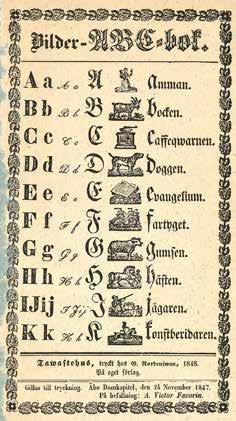 Bilder-ABC-bok.
A a A a A Amman.
B b B b B Bocken.
C c C c C Caffeqwarnen.
D d D d D Doggen.
E e E e E Evangelium.
F f F f F Fartyget.
G g G g G Gumsen.
H h H h H Hästen.
IJ ij I J ij I Jägaren.
K k K k K Konstberidaren.
Tawastehus, tryckt hos G. Nordenswan, 1848.
På eget förlag.
Gillas till tryckning. Åbo Domkapitel, den 24 November 1847.
På befallning: A. Victor Favorin.